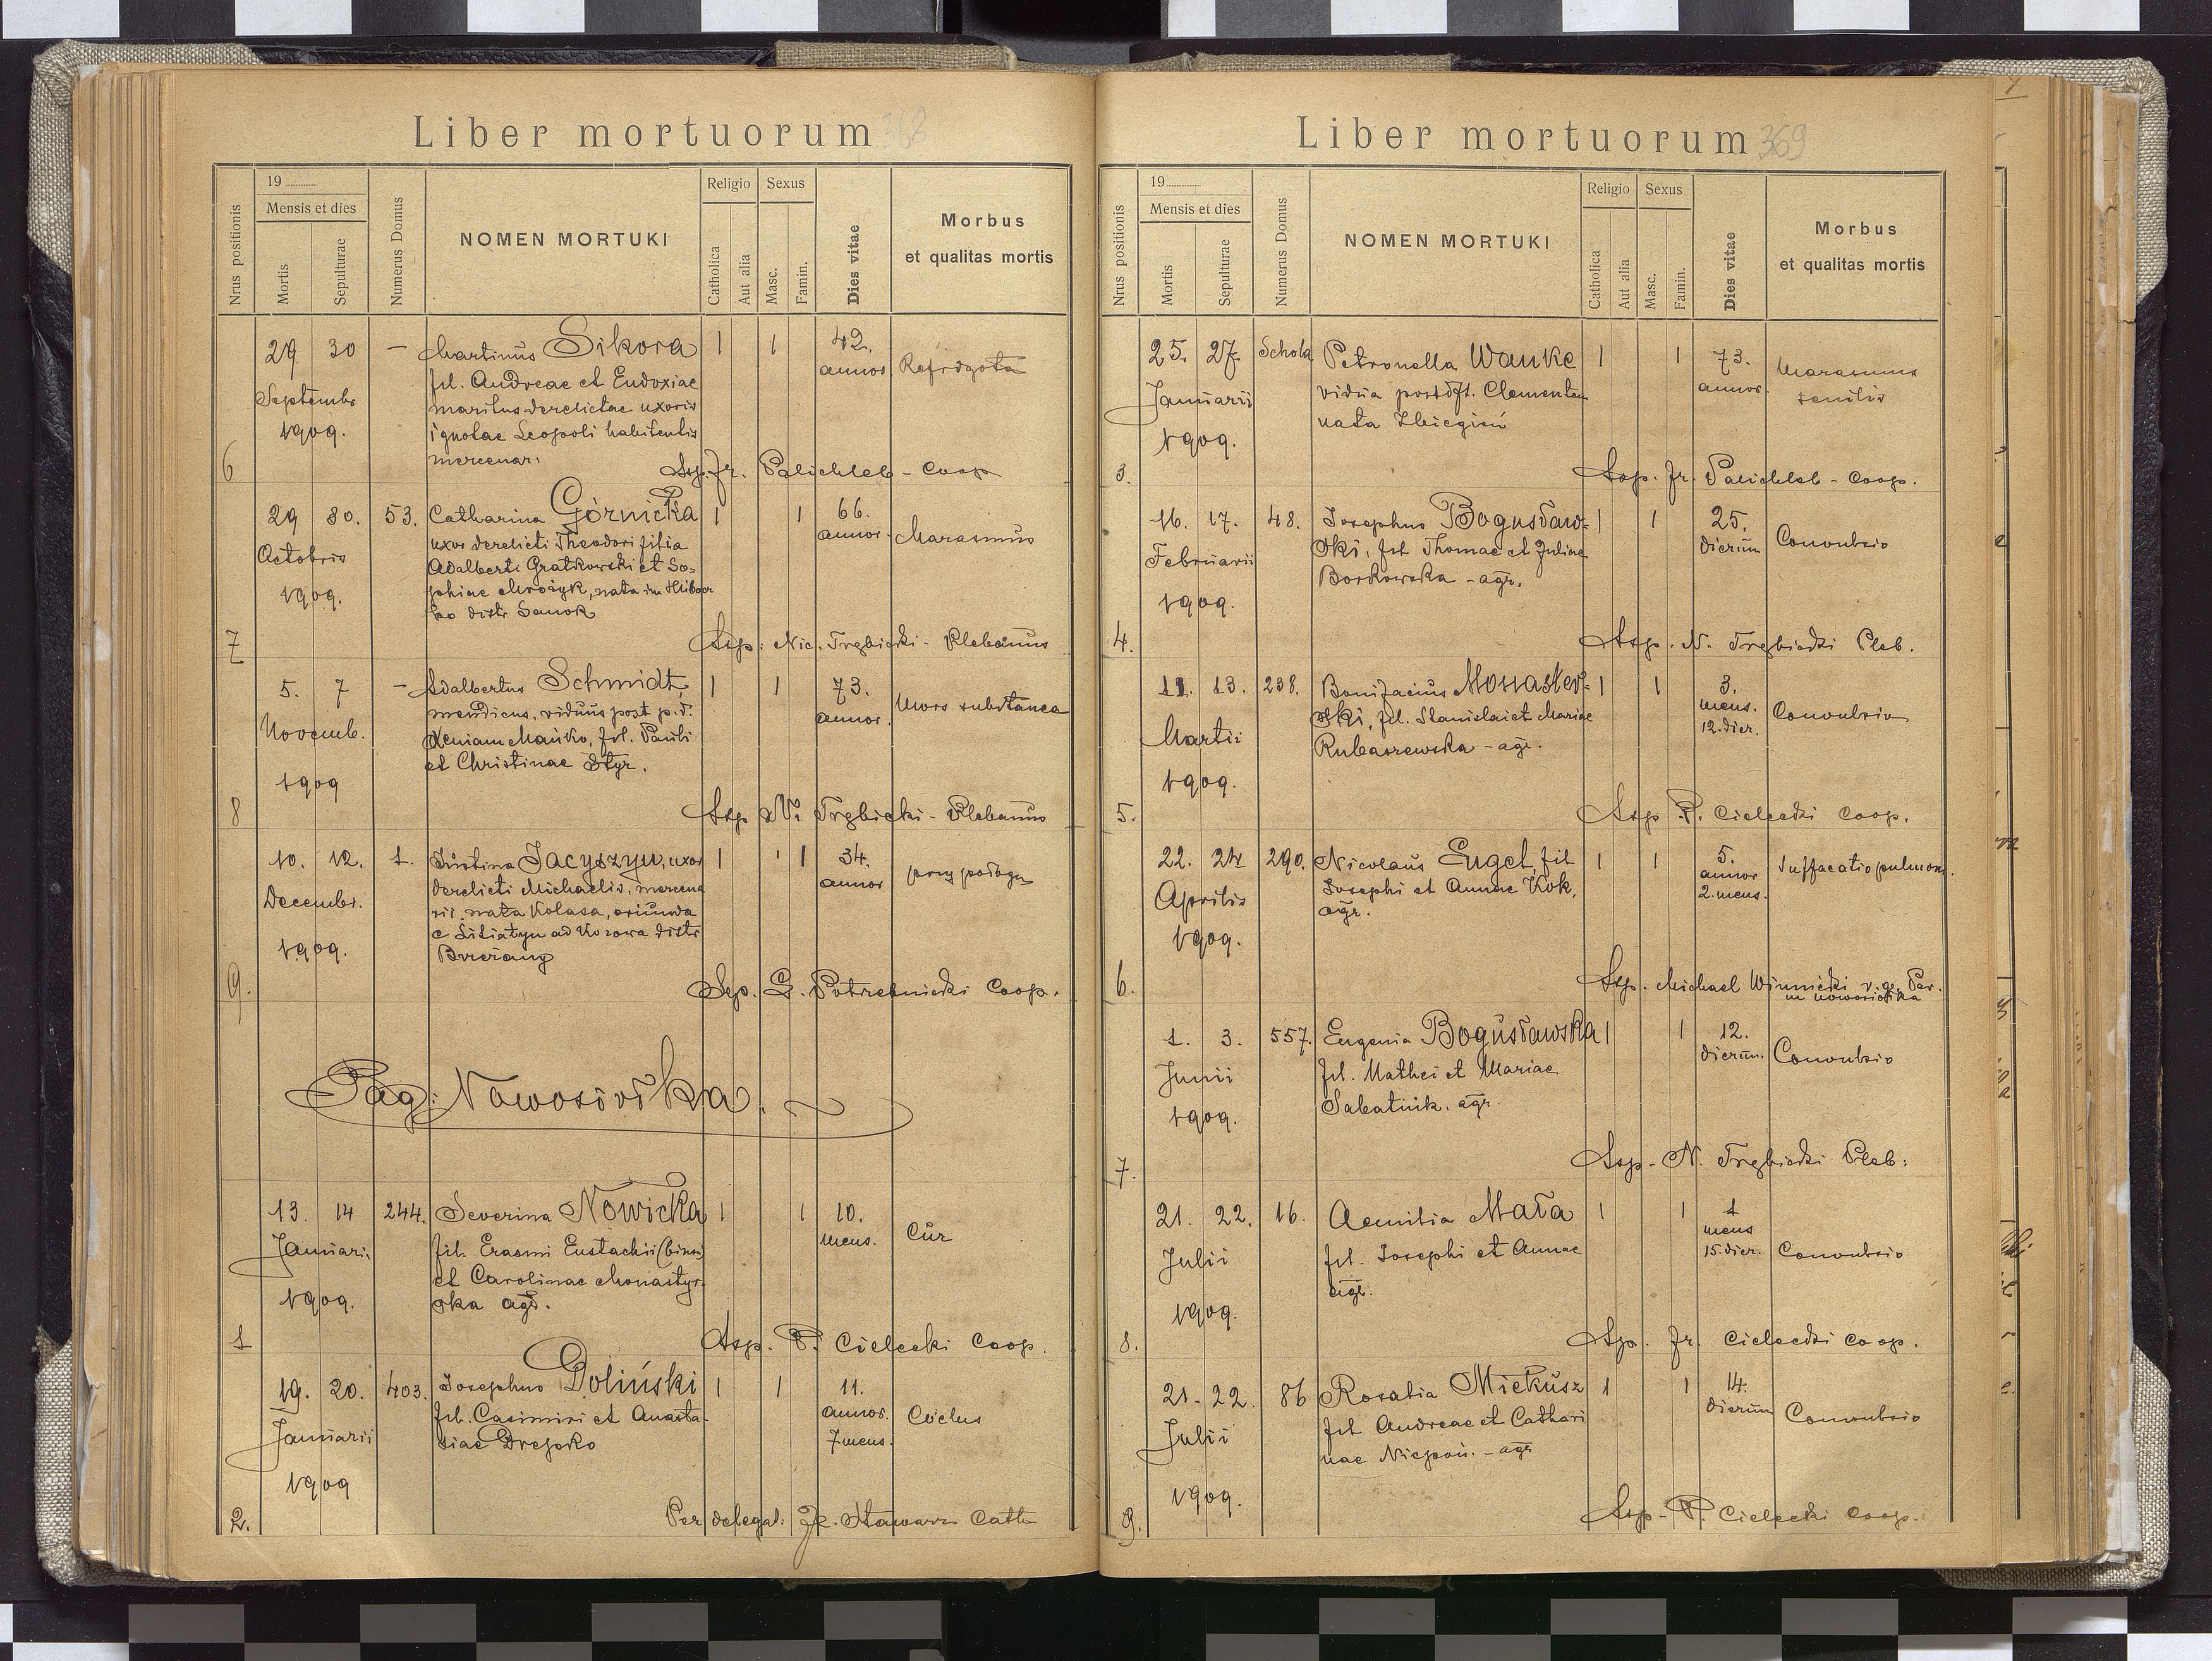 Liber mortuorum 368
19
Mensis et dies
Nrus positionis
Mortis
Sepulturae
Numerus Domus
NOMEN MORTUKI
Religio
Catholica
Aut alia
Sexus
Masc.
Famin.
Dies vitae
Morbus
et qualitas mortis
29 30 – Martinus Sikora 1 1 42.
fil. Andreae et Eudoxiae annor.
Septembr maritus derelictae uxoris
1909. ignotae Leopoli habitentis
6 mercenar.
Asp. Fr. Palichleb - Coop
29 30. 53. Catharina Górnicka 1 1 66.
uxor derelicti Theodori filia annor. Marasmus
Octobris Adalberti Gratkowski et So-
1909. phiae Mrożyk, nata in
ko distr Sanok
7 Asp: Nic. Trzbicki - Plebanus
5. 7 – Adalbertus Schmidt, 1 1 73.
mendicus, viduus post p. d. annor. Mors subitanea
Novemb. Xeniam Mańko, fil. Pauli
et Christinae Styr.
1909
8 Asp N. Trzbicki - Plebanus
10. 12. 1. Justina Jacyszyn, uxor 1 1 34.
derelicti Michaelis, mercena annor
Decembr. rii, nata Kolasa, oriunda
e Litiatyn ad Kozowa distr
1909. Brzeżany
9. Asp. G. Potrebnicki Coop.
Pag: Nowosiółka.
13. 14 244. Severina Nowicka 1 1 10.
fil. Erasmi Eustachii (bini) mens. Cur
Januarii et Carolinae Monastyr-
1909. ska agr.
1 Asp. P. Cielecki Coop.
19. 20. 403. Josephus Doliński 1 1 11.
fil. Casimiri et Anasta- annor. Coclus
Januarii siae Drepko 7 mens.
1909
2. Per delegat: Fr. Cath
Liber mortuorum 369
19
Mensis et dies
Nrus positionis
Mortis
Sepulturae
Numerus Domus
NOMEN MORTUKI
Religio
Catholica
Aut alia
Sexus
Masc.
Famin.
Dies vitae
Morbus
et qualitas mortis
25. 27. Schola Petronella Wanke 1 1 73. Marasmus
vidua post dft. Clementem annor. senilis
Januarii nata
1909.
3. Asp. Fr. Palichleb - Coop.
16. 17. 48. Josephus Bogusław- 1 1 25.
ski, fil Thomae et Juliae dierum Convulsio
Februarii Borkowska - agr.
1909.
4. Asp. N. Trzbicki Pleb.
11. 13. 238. Bonifacius Monaster- 1 1 3.
ski, fil. Stanislai et Mariae mens. Convulsio
Martii Rubaszewska - agr. 12. dier.
1909.
5. Asp P. Cielecki Coop.
22. 24 290. Nicolaus Engel, fil 1 1 5. Suffocatio pulmon.
Josephi et Annae Kok, annor
Aprilis agr. 2. mens.
1909.
6. Asp. Michael Winnicki r. gr. Par.
in Nowosiółka
1. 3. 557. Eugenia Bogusławska 1 1 12.
fil. Mathei et Mariae dierum. Convulsio
Junii Sabatiuk. agr.
1909.
7. Asp - N. Trzbicki Pleb:
21. 22. 16. Aemilia Mała 1 1 1
fil. Josephi et Annae mens
Julii agr. 15. dier. Convulsio
1909.
8. Asp. Fr. Cielecki Coop.
21. 22. 86 Rosalia Mickusz 1 1 14.
fil Andreae et Cathari dierum Convulsio
Julii nae - agr
1909.
9. Asp - P. Cielecki Coop.